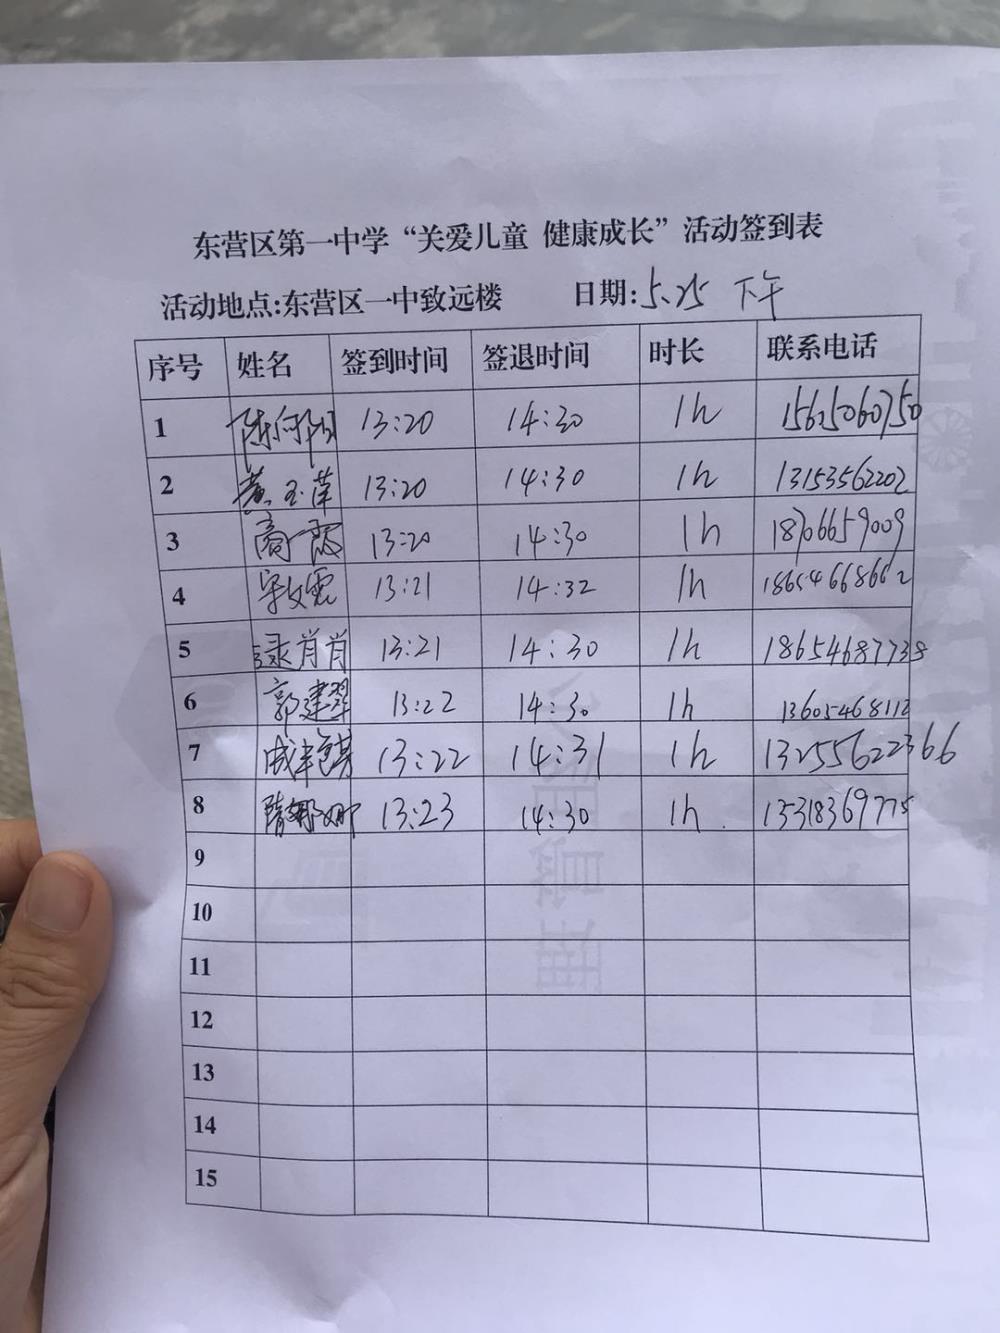 东营区第一中学“关爱儿童 健康成长”活动签到表
活动地点:东营区一中致远楼 日期:5.25 下午
序号 姓名 签到时间 签退时间 时长 联系电话
1 陈向阳 13:20 14:30 1h 15615060750
2 黄玉萍 13:20 14:30 1h 13153562202
3 商霞 13:20 14:30 1h 18706659009
4 宋文霓 13:21 14:32 1h 18654668662
5 肖肖 13:21 14:30 1h 18654687738
6 郭建翠 13:22 14:30 1h 13605468112
7 13:22 14:31 1h 13255622366
8 隋娜娜 13:23 14:30 1h 13318369775
9
10
11
12
13
14
15